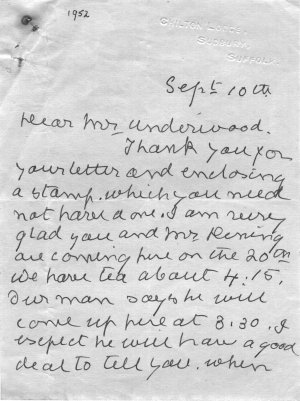 1952
CHILTON LODGE,
SUDBURY,
SUFFOLK.
Sept 10th
Dear Mr Underwood.
Thank you for
your letter and enclosing
a stamp. which you need
not have done. I am very
glad you and Mr
are coming here on the 20th
we have tea about 4.15.
Our man says he will
come up here at 3.30. I
expect he will have a good
deal to tell you. when